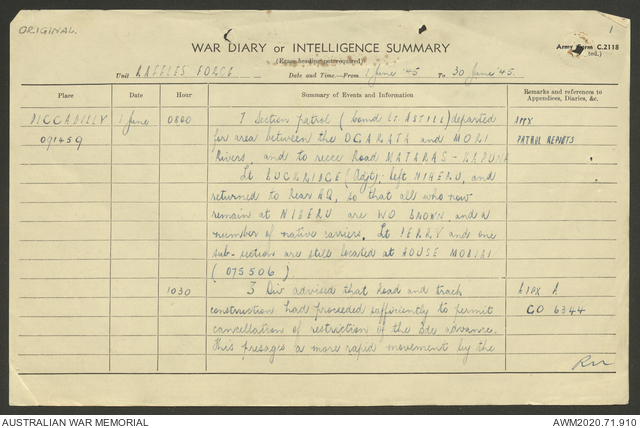 ORIGINAL.
1
WAR DIARY or INTELLIGENCE SUMMARY
Army Form C.2118
(Erase heading not required)
Unit RAFFLES FORCE Date and Time—From 1 June '45 To 30 June '45.
Place Date Hour Summary of Events and Information Remarks and references to Appendices, Diaries, &c.
PICCADILLY 1 June 0800 7 Section patrol (comd Lt ASTILL) departed APPX
091459 for area between the OGARATA and MOBI PATROL REPORTS
Rivers, and to recce Road MATARAS -
Lt BUCKRIDGE (Adjt). left NIGERU, and
returned to Rear HQ, so that all who now
remain at NIGERU are WO BROWN, and a
number of native carriers. Lt PERRY and one
sub-section are still located at HOUSE MOBIRI
(075506)
1030 3 Div advised that road and track APPX A
construction had proceeded sufficiently to permit GO 6344
cancellation of restriction of the Bde advance.
This presages a more rapid movement by the
AUSTRALIAN WAR MEMORIAL AWM2020.71.910